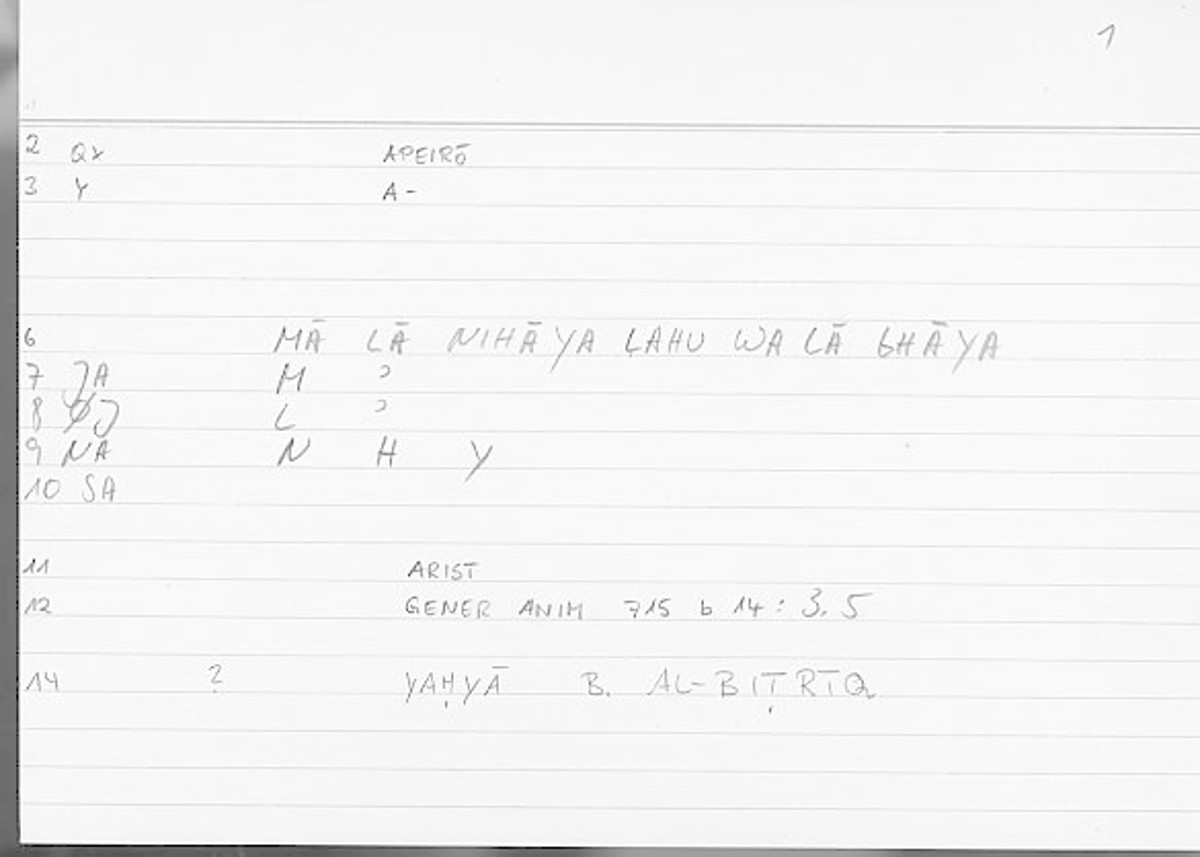 1
2 QY APEIRŌ
3 Y A-
6 MĀ LĀ NIHĀYA LAHU WA LĀ GHĀYA
7 JA M ʾ
8 J L ʾ
9 NA N H Y
10 SA
11 ARIST
12 GENER ANIM 715 b 14 : 3.5
14 ? YAḤYĀ B. AL-BIṬRĪQ